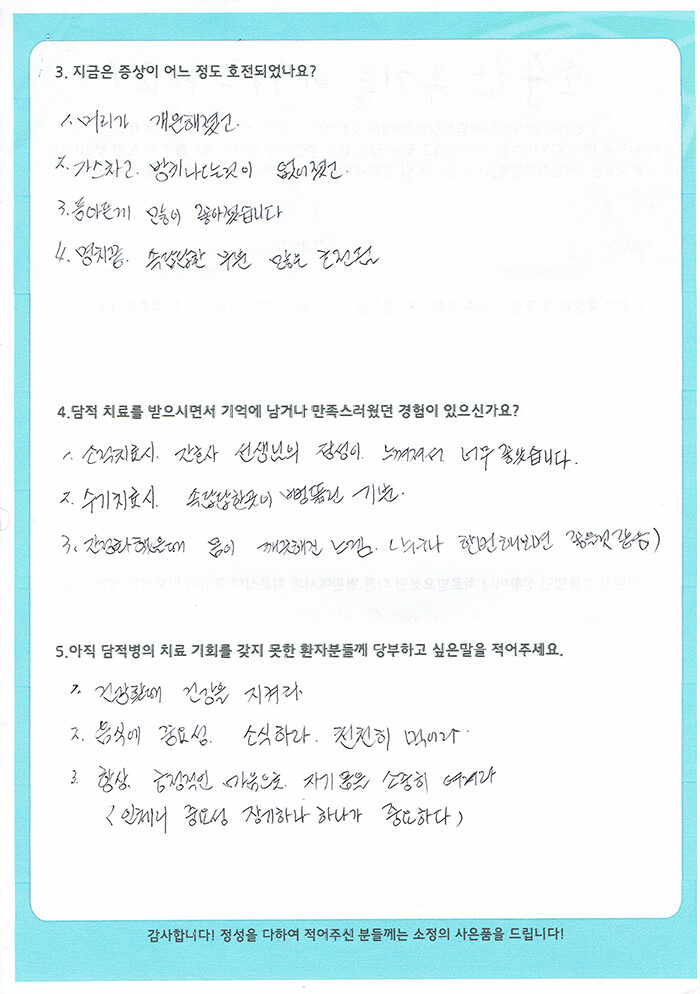 3. 지금은 증상이 어느 정도 호전되었나요?
1. 머리가 개운해졌고.
2. 가스차고. 방귀나다는것이 없어졌고.
3. 통아픈게 많이 좋아졌습니다
4. 명치끝. 속답답한 부분 많은 호전됨
4.담적 치료를 받으시면서 기억에 남거나 만족스러웠던 경험이 있으신가요?
1. 소적치료시. 간호사 선생님의 정성이. 느껴져서 너무 좋았습니다.
2. 수기치료시. 속답답한곳이 뻥뚫린 기분.
3. 간정화했을때 몸이 깨끗해진 느낌. (누구나 한번해보면 좋을것같음)
5.아직 담적병의 치료 기회를 갖지 못한 환자분들께 당부하고 싶은말을 적어주세요.
1. 건강할때 건강을 지켜라.
2. 음식에 중요성. 소식하라. 천천히 먹어라.
3. 항상. 긍정적인 마음으로. 자기몸을 소중히 여겨라
(인체니 중요성 장기하나 하나가 중요하다)
감사합니다! 정성을 다하여 적어주신 분들께는 소정의 사은품을 드립니다!